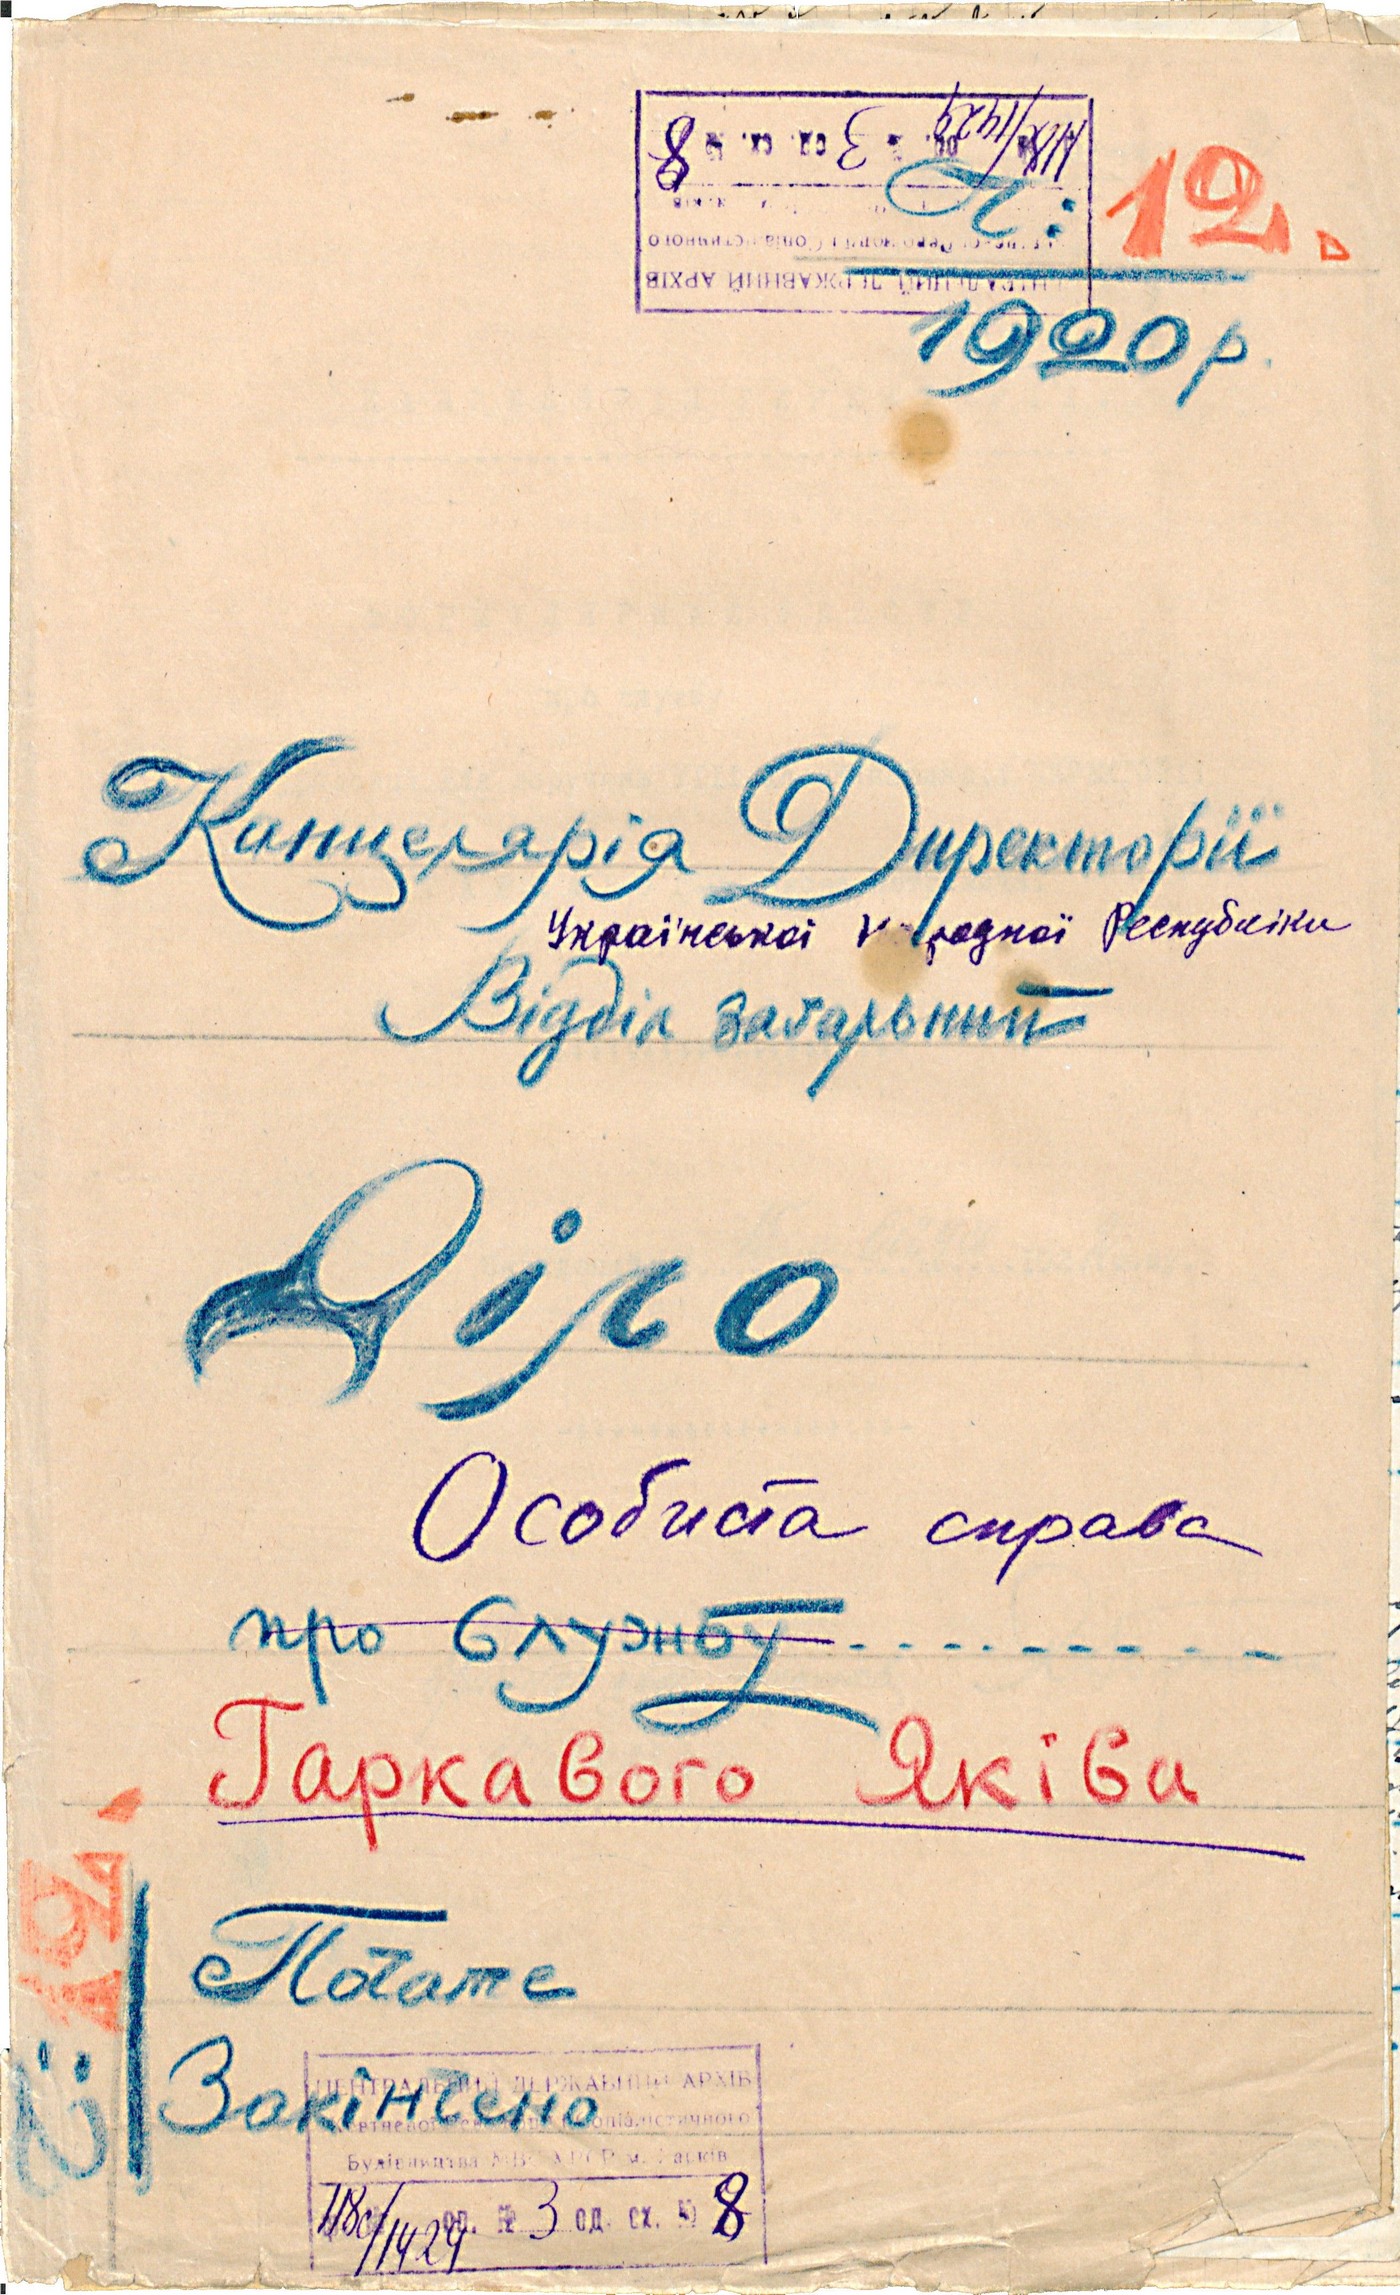 №: 12.
1920 р.
Канцелярія Директорії
Української Народної Республіки
Відділ загальний
Діло
Особиста справа
про службу
Гаркавого Яківа
Почате
Закінчено
ЦЕНТРАЛЬНИЙ ДЕРЖАВНИЙ АРХІВ
Жовтневої Революції і Соціалістичного
Будівництва МВС УРСР м. Харків
оп. № 3 од. сх. № 8
ЦЕНТРАЛЬНИЙ ДЕРЖАВНИЙ АРХІВ
Жовтневої Революції і Соціалістичного
оп. № 3 од. сх. № 8
№: 12.